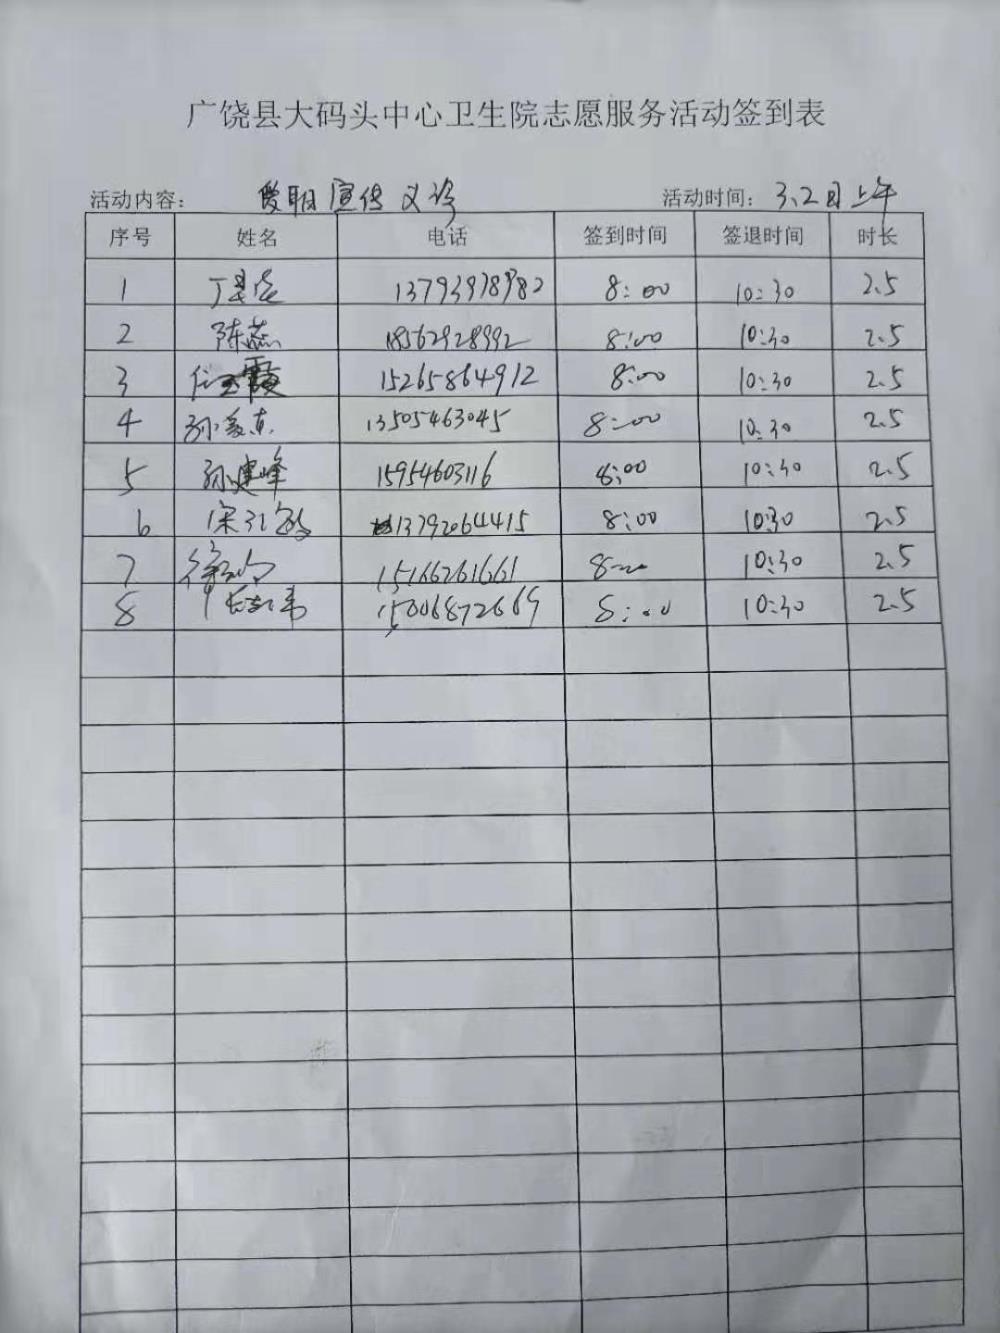 广饶县大码头中心卫生院志愿服务活动签到表
活动内容: 爱眼宣传义诊 活动时间: 3.2日上午
序号 姓名 电话 签到时间 签退时间 时长
1 13793978982 8:00 10:30 2.5
2 陈燕 18562928992 8:00 10:30 2.5
3 任玉霞 15265864912 8:00 10:30 2.5
4 13505463045 8:00 10:30 2.5
5 孙建峰 15954603116 8:00 10:30 2.5
6 13792064415 8:00 10:30 2.5
7 15166261661 8:00 10:30 2.5
8 15006872669 8:00 10:30 2.5